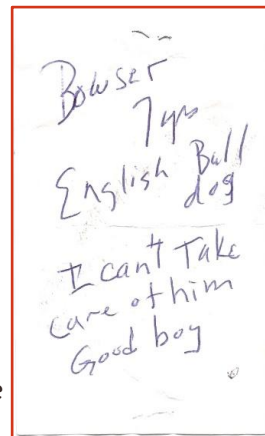 Bowser
7 yrs
English Bull
dog
I can't Take
care of him
Good boy
e